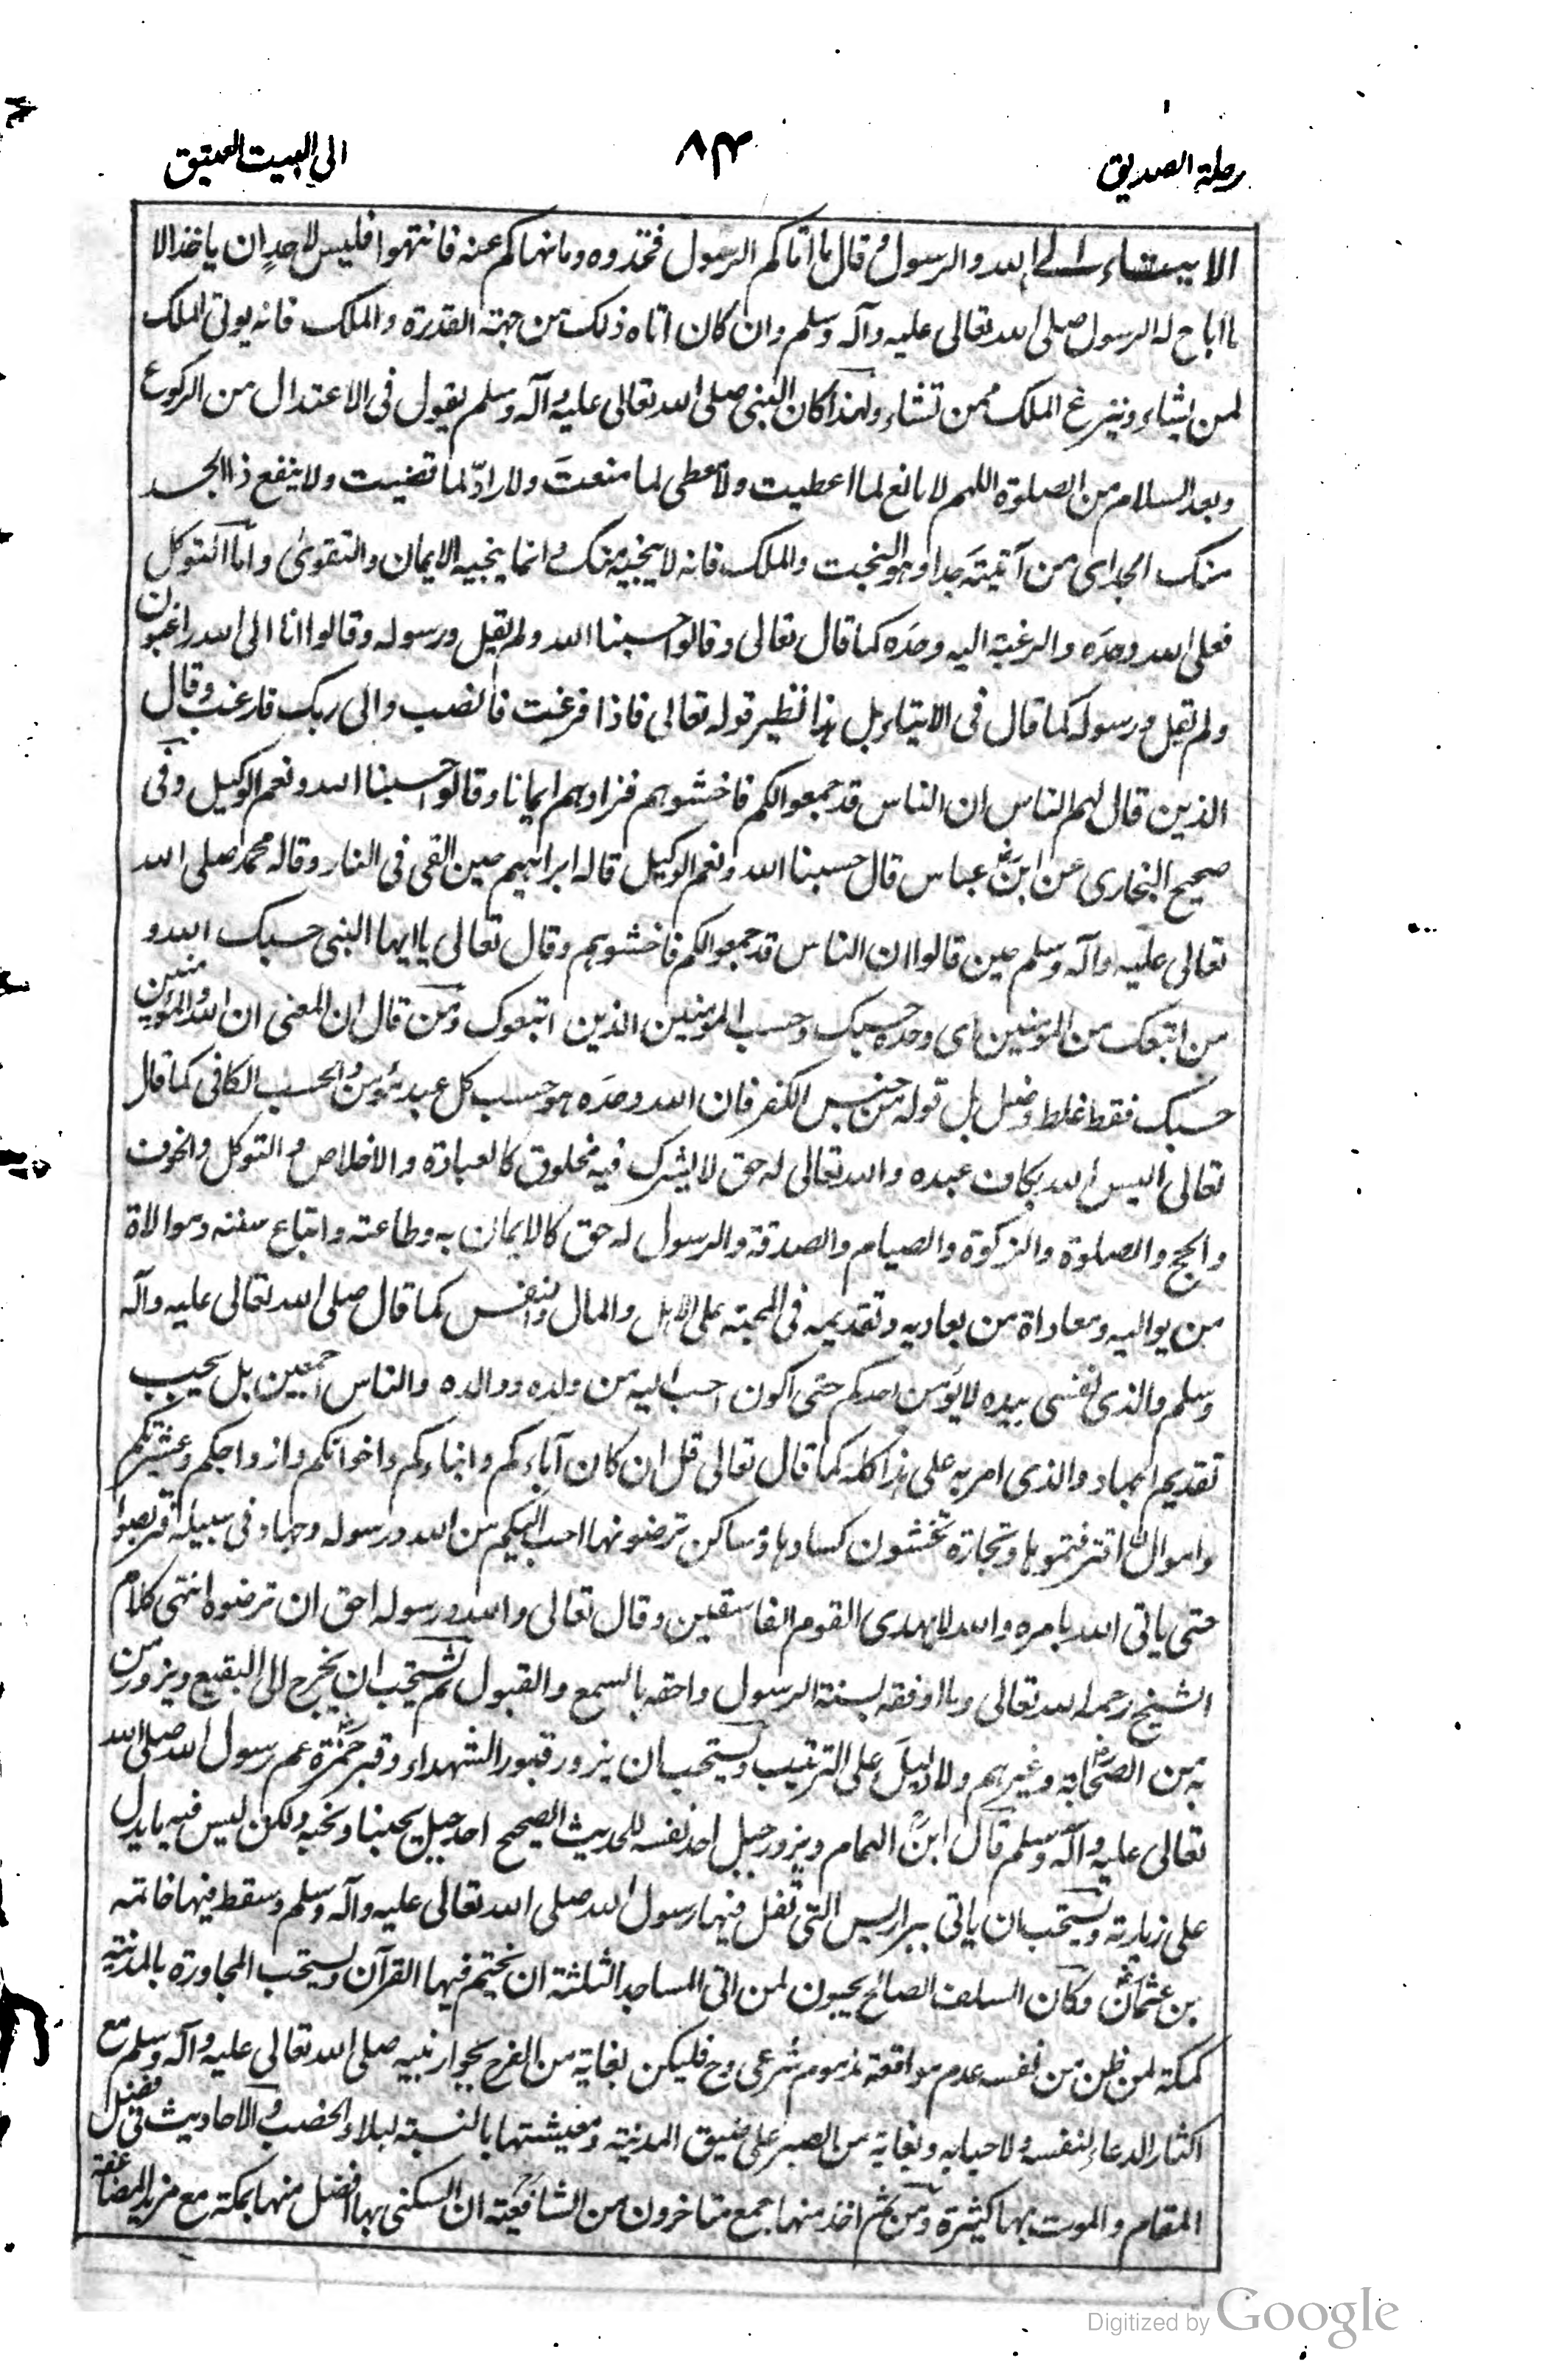 رحلة الصديق
٨٣
الى البيت العتيق
الايتاء الى الله والرسول وقال ما اتاكم الرسول فخذوه وما نهاكم عنه فانتهوا فليس لاحد ان ياخذ الا
ما اباح له الرسول صلى الله تعالى عليه وآله وسلم وان كان اتاه ذلك من جهة القدرة والملك فانه يؤتى الملك
لمن يشاء وينزع الملك ممن تشاء ولهذا كان النبى صلى الله تعالى عليه وآله وسلم يقول فى الاعتدال من الركوع
وبعد السلام من الصلوة اللهم لا مانع لما اعطيت ولا معطى لما منعت ولا رادّ لما قضيت ولا ينفع ذا الجد
منك الجد اى من آتيته جدا وهو البخت والملك فانه لا ينجيه منك وانما ينجيه الايمان والتقوىٰ واما التوكل
فعلى الله وحده والرغبة اليه وحده كما قال تعالى وقالوا حسبنا الله ولم يقل ورسوله وقالوا انا الى الله راغبون
ولم تقل ورسوله كما قال فى الايتاء بل هذا نظير قوله تعالى فاذا فرغت فانصب والى ربك فارغب وقال
الذين قال لهم الناس ان الناس قد جمعوا لكم فاخشوهم فزادهم ايمانا وقالوا حسبنا الله ونعم الوكيل وفى
صحيح البخارى عن ابن عباس قال حسبنا الله ونعم الوكيل قاله ابراهيم حين القى فى النار وقاله محمد صلى الله
تعالى عليه وآله وسلم حين قالوا ان الناس قد جمعوا لكم فاخشوهم وقال تعالى يا ايها النبى حسبك الله و
من اتبعك من المؤمنين اى وحده حسبك وحسب المؤمنين الذين اتبعوك ومن قال ان المعنى ان الله والمؤمنين
حسبك فقط غلط وضل بل قوله من جنس الكفر فان الله وحده هو حسب كل عبد مؤمن والحسب الكافى كما قال
تعالى اليس الله بكاف عبده والله تعالى له حق لا يشرك فيه مخلوق كالعبادة والاخلاص والتوكل والخوف
والحج والصلوة والزكوة والصيام والصدقة والرسول له حق كالايمان به وطاعته واتباع سنته وموالاة
من يواليه ومعاداة من يعاديه وتقديمه فى المحبة على الاهل والمال والنفس كما قال صلى الله تعالى عليه وآله
وسلم والذى نفسى بيده لا يؤمن احدكم حتى اكون احب اليه من ولده ووالده والناس اجمعين بل يجب
تقديم الجهاد والذى امر به على هذا كله كما قال تعالى قل ان كان آباءكم وابناءكم واخوانكم وازواجكم وعشيرتكم
واموال اقترفتموها وتجارة تخشون كسادها ومساكن ترضونها احب اليكم من الله ورسوله وجهاد فى سبيله فتربصوا
حتى ياتى الله بامره والله لا يهدى القوم الفاسقين وقال تعالى والله ورسوله احق ان ترضوه انتهى كلام
الشيخ رحمه الله تعالى وما اوفقه بسنة الرسول واحقه بالسمع والقبول ثم يستحب ان يخرج الى البقيع ويزور من
به من الصحابة وغيرهم ولا دليل على الترتيب ويستحب ان يزور قبور الشهداء وقبر حمزة عم رسول الله صلى الله
تعالى عليه وآله وسلم قال ابن الهمام ويزور جبل احد نفسه للحديث الصحيح احد جبل يحبنا ونحبه ولكن ليس فيه ما يدل
على زيارته ويستحب ان ياتى بير اريس التى تفل فيها رسول الله صلى الله تعالى عليه وآله وسلم وسقط فيها خاتمه
بن عثمان وكان السلف الصالح يحبون لمن اتى المساجد الثلثة ان يختم فيها القرآن ويستحب المجاورة بالمدينة
كمكة لمن ظن من نفسه عدم مواقعة مذموم شرعى وح فليكن بغاية من الفرح بجوار نبيه صلى الله تعالى عليه وآله وسلم مع
اكثار الدعاء لنفسه ولاحبابه وبغاية من الصبر على ضيق المدينة ومعيشتها بالنسبة لبلاد الخصب والاحاديث فى فضل
المقام والموت بها كثيرة ومن ثم اخذ منها جمع متاخرون من الشافعية ان السكنى بها افضل منها بمكة مع مزيد المضاعفة
Digitized by Google